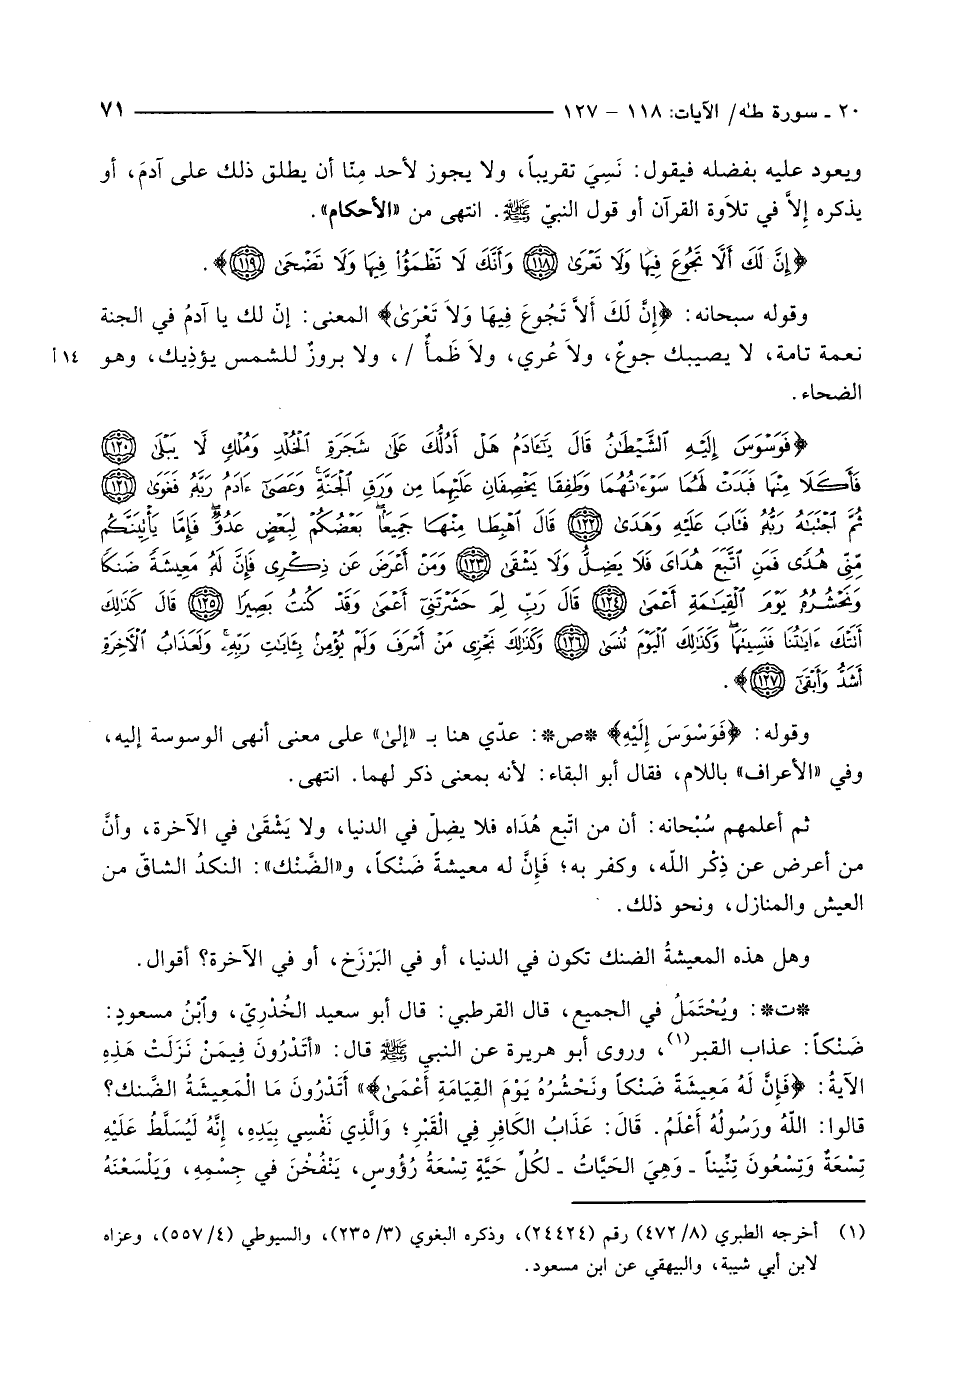 ٢٠ ـ سورة طه/ الآيات: ١١٨ – ١٢٧ ٧١
ويعود عليه بفضله فيقول: نَسِيَ تقريباً، ولا يجوز لأحد مِنّا أن يطلق ذلك على آدمَ، أو
يذكره إلاَّ في تلاَوة القرآن أو قول النبيّ ﷺ. انتهى من «الأحكام».
﴿إِنَّ لَكَ أَلَّا تَجُوعَ فِيهَا وَلَا تَعْرَىٰ ﴿١١٨﴾ وَأَنَّكَ لَا تَظْمَؤُا۟ فِيهَا وَلَا تَضْحَىٰ ﴿١١٩﴾﴾.
وقوله سبحانه: ﴿إِنَّ لَكَ أَلاَّ تَجُوعَ فِيهَا وَلاَ تَعْرَىٰ﴾ المعنى: إنّ لك يا آدمُ في الجنة
نعمة تامة، لا يصيبك جوعٌ، ولاَ عُري، ولاَ ظَمأٌ /، ولا بروزٌ للشمس يؤذِيك، وهو ١٤ أ
الضحاء.
﴿فَوَسْوَسَ إِلَيْهِ ٱلشَّيْطَٰنُ قَالَ يَٰٓـَٔادَمُ هَلْ أَدُلُّكَ عَلَىٰ شَجَرَةِ ٱلْخُلْدِ وَمُلْكٍ لَّا يَبْلَىٰ ﴿١٢٠﴾
فَأَكَلَا مِنْهَا فَبَدَتْ لَهُمَا سَوْءَٰتُهُمَا وَطَفِقَا يَخْصِفَانِ عَلَيْهِمَا مِن وَرَقِ ٱلْجَنَّةِ ۚ وَعَصَىٰٓ ءَادَمُ رَبَّهُۥ فَغَوَىٰ ﴿١٢١﴾
ثُمَّ ٱجْتَبَٰهُ رَبُّهُۥ فَتَابَ عَلَيْهِ وَهَدَىٰ ﴿١٢٢﴾ قَالَ ٱهْبِطَا مِنْهَا جَمِيعًۢا ۖ بَعْضُكُمْ لِبَعْضٍ عَدُوٌّ ۖ فَإِمَّا يَأْتِيَنَّكُم
مِّنِّى هُدًى فَمَنِ ٱتَّبَعَ هُدَاىَ فَلَا يَضِلُّ وَلَا يَشْقَىٰ ﴿١٢٣﴾ وَمَنْ أَعْرَضَ عَن ذِكْرِى فَإِنَّ لَهُۥ مَعِيشَةً ضَنكًا
وَنَحْشُرُهُۥ يَوْمَ ٱلْقِيَٰمَةِ أَعْمَىٰ ﴿١٢٤﴾ قَالَ رَبِّ لِمَ حَشَرْتَنِىٓ أَعْمَىٰ وَقَدْ كُنتُ بَصِيرًا ﴿١٢٥﴾ قَالَ كَذَٰلِكَ
أَتَتْكَ ءَايَٰتُنَا فَنَسِيتَهَا ۖ وَكَذَٰلِكَ ٱلْيَوْمَ تُنسَىٰ ﴿١٢٦﴾ وَكَذَٰلِكَ نَجْزِى مَنْ أَسْرَفَ وَلَمْ يُؤْمِنۢ بِـَٔايَٰتِ رَبِّهِۦ ۚ وَلَعَذَابُ ٱلْءَاخِرَةِ
أَشَدُّ وَأَبْقَىٰٓ ﴿١٢٧﴾﴾.
وقوله: ﴿فَوَسْوَسَ إِلَيْهِ﴾ *ص*: عدّي هنا بـ «إلىٰ» على معنى أنهى الوسوسة إليه،
وفي «الأعراف» باللام، فقال أبو البقاء: لأنه بمعنى ذكر لهما. انتهى.
ثم أعلمهم سُبْحانه: أن من اتّبع هُدَاه فلا يضِلّ في الدنيا، ولا يَشْقَىٰ في الآخرة، وأنَّ
من أعرض عن ذِكْر اللّه، وكفر به؛ فَإِنَّ له معيشةً ضَنْكاً، و«الضَّنْك»: النكدُ الشاقّ من
العيش والمنازل، ونحو ذلك.
وهل هذه المعيشةُ الضنك تكون في الدنيا، أو في البَرْزَخ، أو في الآخرة؟ أقوال.
*ت*: ويُحْتَمَلُ في الجميع، قال القرطبي: قال أبو سعيد الخُدْرِيّ، وٱبْنُ مسعودٍ:
ضَنْكاً: عذاب القبر(١)، وروى أبو هريرة عن النبي ﷺ قال: «أَتَدْرُونَ فِيمَنْ نَزَلَتْ هَذِهِ
الآيةُ: ﴿فَإِنَّ لَهُ مَعِيشَةً ضَنْكاً ونَحْشُرُهُ يَوْمَ القِيَامَةِ أَعْمَىٰ﴾» أَتَدْرُونَ مَا الْمَعِيشَةُ الضَّنك؟
قالوا: اللّهُ ورَسُولُهُ أَعْلَمُ. قَالَ: عَذَابُ الكَافِرِ فِي الْقَبْرِ؛ وَالَّذِي نَفْسِي بِيَدِهِ، إِنَّهُ لَيُسَلَّطُ عَلَيْهِ
تِسْعَةٌ وَتِسْعُونَ تِنِّيناً ـ وَهِيَ الحَيَّاتُ ـ لكُلِّ حَيَّةٍ تِسْعَةُ رُؤُوسٍ، يَنْفُخْنَ في جِسْمِهِ، وَيَلْسَعْنَهُ
(١) أخرجه الطبري (٨/ ٤٧٢) رقم (٢٤٤٢٤)، وذكره البغوي (٣/ ٢٣٥)، والسيوطي (٤/ ٥٥٧)، وعزاه
لابن أبي شيبة، والبيهقي عن ابن مسعود.